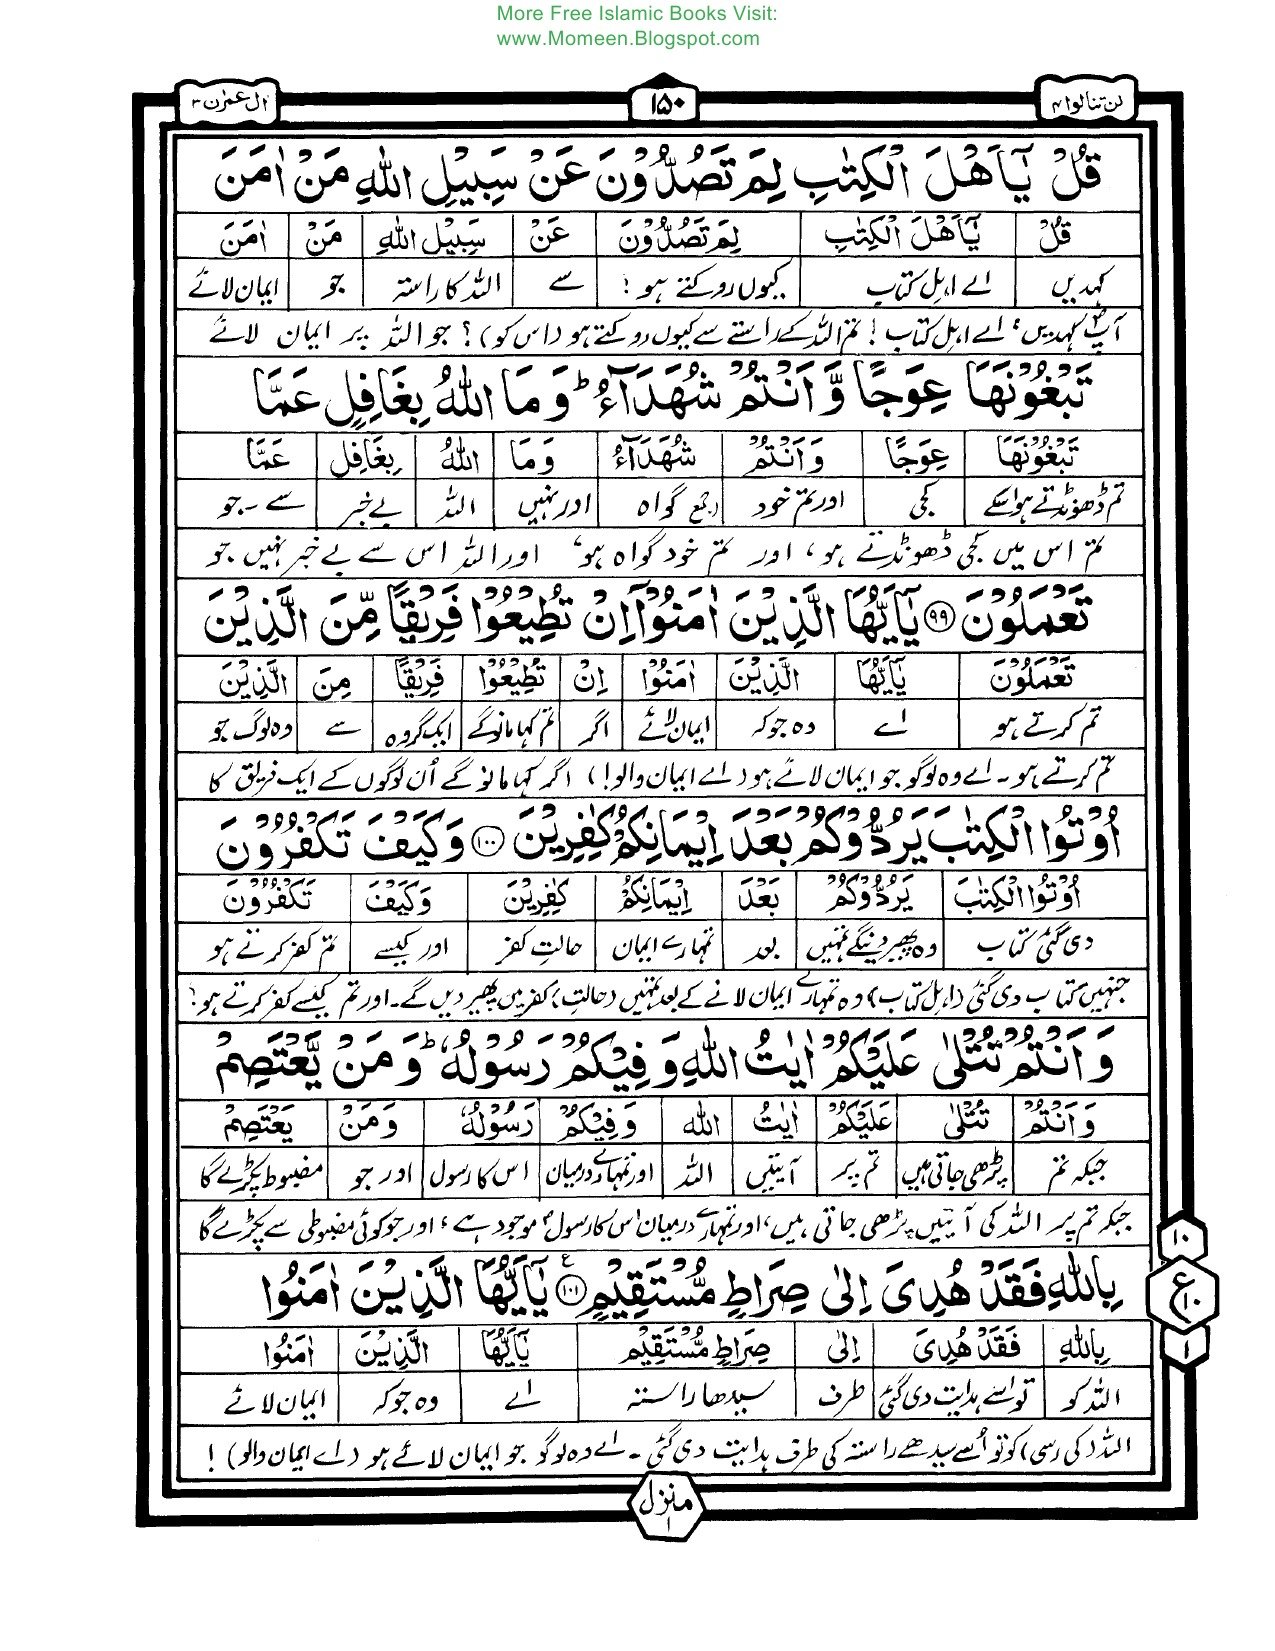 More Free Islamic Books Visit:
www.Momeen.Blogspot.com
لن تنالوا ۴ ۱۵۰ اٰل عمرٰن ۳
قُلْ يٰٓاَهْلَ الْكِتٰبِ لِمَ تَصُدُّوْنَ عَنْ سَبِيْلِ اللّٰهِ مَنْ اٰمَنَ
قُلْ يٰٓاَهْلَ الْكِتٰبِ لِمَ تَصُدُّوْنَ عَنْ سَبِيْلِ اللّٰهِ مَنْ اٰمَنَ
کہدیں اے اہل کتاب کیوں روکتے ہو؟ سے اللہ کا راستہ جو ایمان لائے
آپؐ کہدیں، اے اہل کتاب! تم اللہ کے راستے سے کیوں روکتے ہو (اس کو)؟ جو اللہ پر ایمان لائے
تَبْغُوْنَهَا عِوَجًا وَّاَنْتُمْ شُهَدَآءُ ؕ وَمَا اللّٰهُ بِغَافِلٍ عَمَّا
تَبْغُوْنَهَا عِوَجًا وَاَنْتُمْ شُهَدَآءُ وَمَا اللّٰهُ بِغَافِلٍ عَمَّا
تم ڈھونڈتے ہو اسکے کجی اور تم خود (جمع) گواہ اور نہیں اللہ بے خبر سے - جو
تم اس میں کجی ڈھونڈتے ہو، اور تم خود گواہ ہو، اور اللہ اس سے بے خبر نہیں جو
تَعْمَلُوْنَ ۹۹ يٰٓاَيُّهَا الَّذِيْنَ اٰمَنُوْٓا اِنْ تُطِيْعُوْا فَرِيْقًا مِّنَ الَّذِيْنَ
تَعْمَلُوْنَ يٰٓاَيُّهَا الَّذِيْنَ اٰمَنُوْٓا اِنْ تُطِيْعُوْا فَرِيْقًا مِنَ الَّذِيْنَ
تم کرتے ہو اے وہ جو کہ ایمان لائے اگر تم کہا مانو گے ایک گروہ سے وہ لوگ جو
تم کرتے ہو۔ اے وہ لوگو جو ایمان لائے ہو (اے ایمان والو!) اگر کہا مانو گے اُن لوگوں کے ایک فریق کا
اُوْتُوا الْكِتٰبَ يَرُدُّوْكُمْ بَعْدَ اِيْمَانِكُمْ كٰفِرِيْنَ ۱۰۰ وَكَيْفَ تَكْفُرُوْنَ
اُوْتُوا الْكِتٰبَ يَرُدُّوْكُمْ بَعْدَ اِيْمَانِكُمْ كٰفِرِيْنَ وَكَيْفَ تَكْفُرُوْنَ
دی گئی کتاب وہ پھیر دینگے تمہیں بعد تمہارے ایمان حالتِ کفر اور کیسے تم کفر کرتے ہو
جنہیں کتاب دی گئی (اہل کتاب) وہ تمہارے ایمان لانے کے بعد تمہیں (حالتِ) کفر میں پھیر دیں گے۔ اور تم کیسے کفر کرتے ہو؟
وَاَنْتُمْ تُتْلٰى عَلَيْكُمْ اٰيٰتُ اللّٰهِ وَفِيْكُمْ رَسُوْلُهٗ ؕ وَمَنْ يَّعْتَصِمْ
وَاَنْتُمْ تُتْلٰى عَلَيْكُمْ اٰيٰتُ اللّٰه وَفِيْكُمْ رَسُوْلُهٗ وَمَنْ يَعْتَصِمْ
جبکہ تم پڑھی جاتی ہیں تم پر آیتیں اللہ اور تمہارے درمیان اس کا رسول اور جو مضبوط پکڑے گا
جبکہ تم پر اللہ کی آیتیں پڑھی جاتی ہیں، اور تمہارے درمیان اس کا رسولؐ موجود ہے، اور جو کوئی مضبوطی سے پکڑے گا
بِاللّٰهِ فَقَدْ هُدِىَ اِلٰى صِرَاطٍ مُّسْتَقِيْمٍ ۱۰۱ ع يٰٓاَيُّهَا الَّذِيْنَ اٰمَنُوا
بِاللّٰهِ فَقَدْ هُدِىَ اِلٰى صِرَاطٍ مُّسْتَقِيْمٍ يٰٓاَيُّهَا الَّذِيْنَ اٰمَنُوا
اللہ کو تو اسے ہدایت دی گئی طرف سیدھا راستہ اے وہ جو کہ ایمان لائے
اللہ (کی رسی) کو تو اُسے سیدھے راستہ کی طرف ہدایت دی گئی۔ اے وہ لوگو جو ایمان لائے ہو (اے ایمان والو)!
۱۰
ع
۱۰
۱
منزل
۱